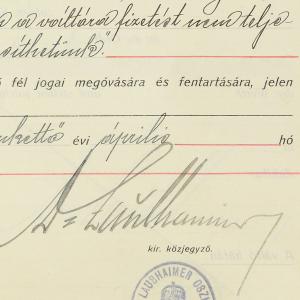 a váltóra fizetést nem telje
síthetünk".
fél jogai megóvására és fentartására, jelen
évi április hó
Dr Laubhaimer
kir. közjegyző.
LAUBHAIMER OSZK